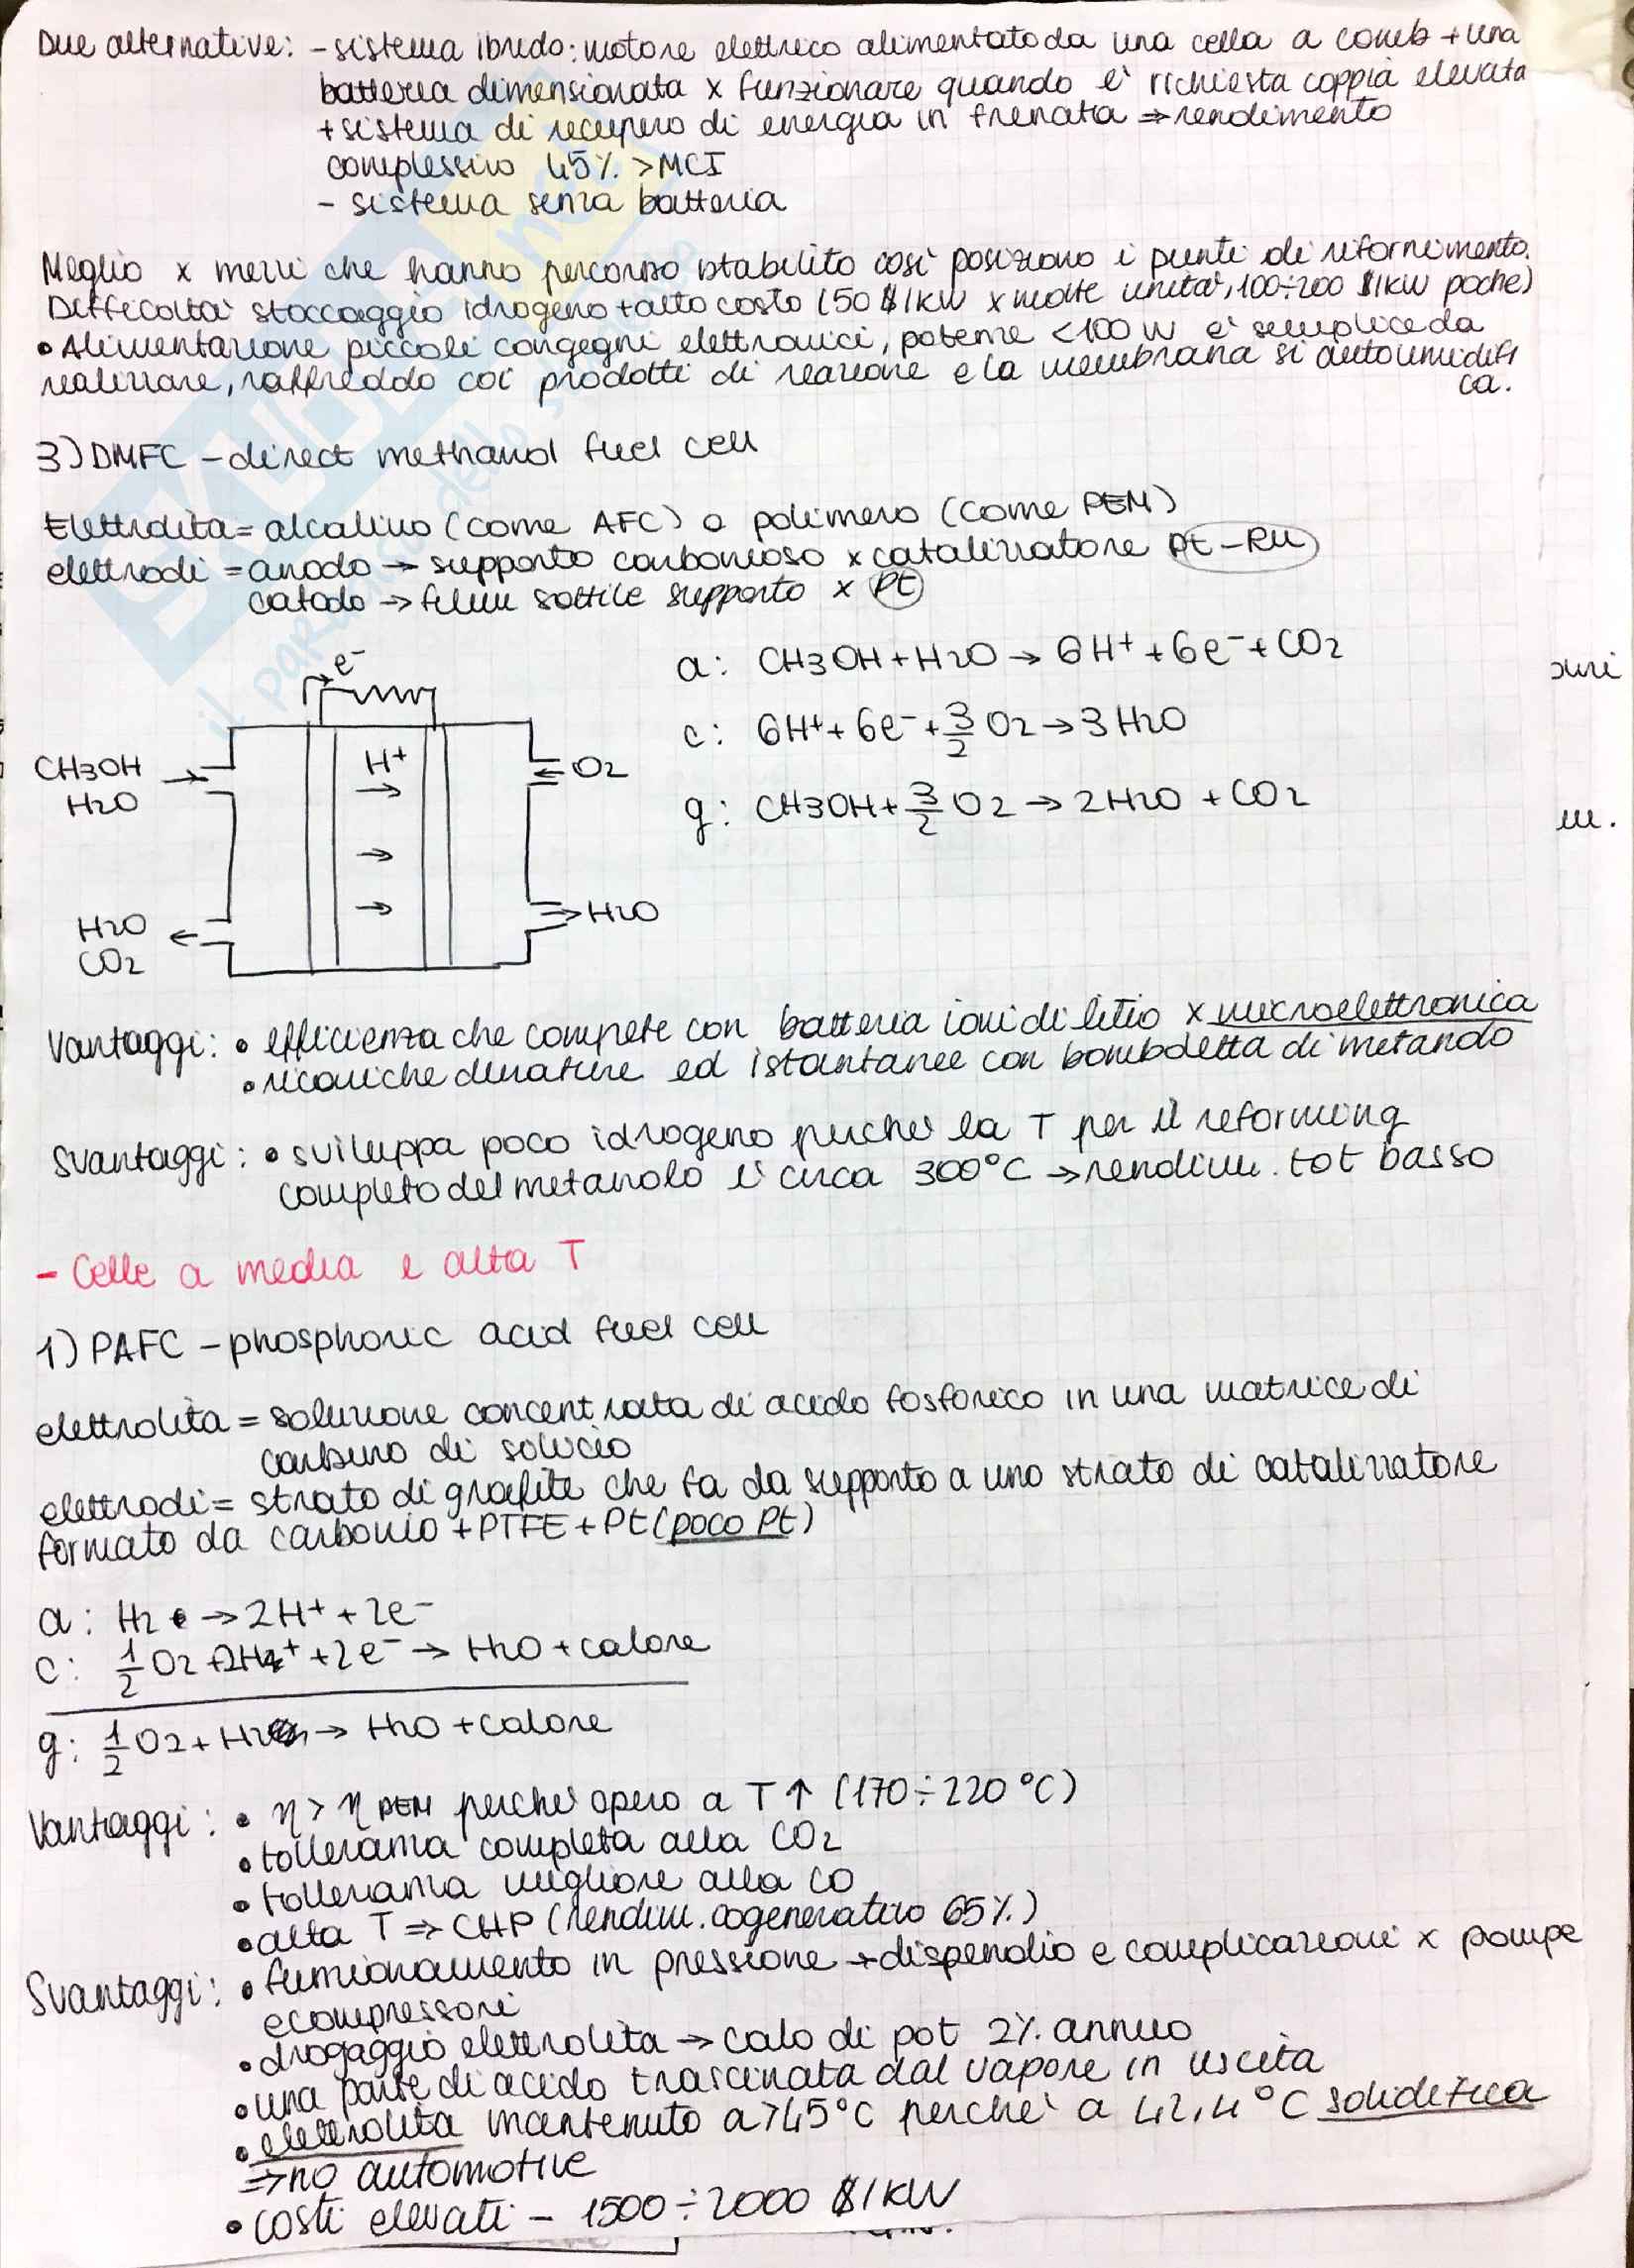 Due alternative: - sistema ibrido: motore elettrico alimentato da una cella a comb + una
batteria dimensionata x funzionare quando e' richiesta coppia elevata
+ sistema di recupero di energia in frenata ⇒ rendimento
complessivo 45% > MCI
- sistema senza batteria
Meglio x mezzi che hanno percorso stabilito così posiziono i punti di rifornimento.
Difficoltà stoccaggio idrogeno + alto costo (50 $/kW x molte unità, 100÷200 $/kW poche)
• Alimentazione piccoli congegni elettronici, potenze <100 W e' semplice da
realizzare, raffreddo coi prodotti di reazione e la membrana si autoumidifi
ca.
3) DMFC - direct methanol fuel cell
Elettrolita = alcalino (come AFC) o polimero (come PEM)
elettrodi = anodo → supporto carbonioso x catalizzatore Pt-Ru
catodo → film sottile supporto x Pt
e⁻
a: CH3OH + H2O → 6H⁺ + 6e⁻ + CO2
c: 6H⁺ + 6e⁻ + 3/2 O2 → 3H2O
g: CH3OH + 3/2 O2 → 2H2O + CO2
CH3OH →
H2O
H⁺
→
← O2
→
→
H2O
CO2 ←
→ H2O
Vantaggi: • efficienza che compete con batteria ioni di litio x microelettronica
• ricariche durature ed istantanee con bomboletta di metanolo
Svantaggi: • sviluppa poco idrogeno perché la T per il reforming
completo del metanolo è circa 300°C → rendim. tot basso
- Celle a media e alta T
1) PAFC - phosphoric acid fuel cell
elettrolita = soluzione concentrata di acido fosforico in una matrice di
carburo di silicio
elettrodi = strato di grafite che fa da supporto a uno strato di catalizzatore
formato da carbonio + PTFE + Pt (poco Pt)
a: H2 → 2H⁺ + 2e⁻
c: 1/2 O2 + 2H⁺ + 2e⁻ → H2O + calore
g: 1/2 O2 + H2 → H2O + calore
Vantaggi: • η > η PEM perche' opero a T ↑ (170÷220 °C)
• tolleranza completa alla CO2
• tolleranza migliore alla CO
• alta T ⇒ CHP (rendim. cogenerativo 65%)
Svantaggi: • funzionamento in pressione → dispendio e complicazioni x pompe
e compressori
• drogaggio elettrolita → calo di pot 2% annuo
• una parte di acido trascinata dal vapore in uscita
• elettrolita mantenuto a >45°C perche' a 42,4 °C solidifica
⇒ no automotive
• costi elevati - 1500÷2000 $/kW